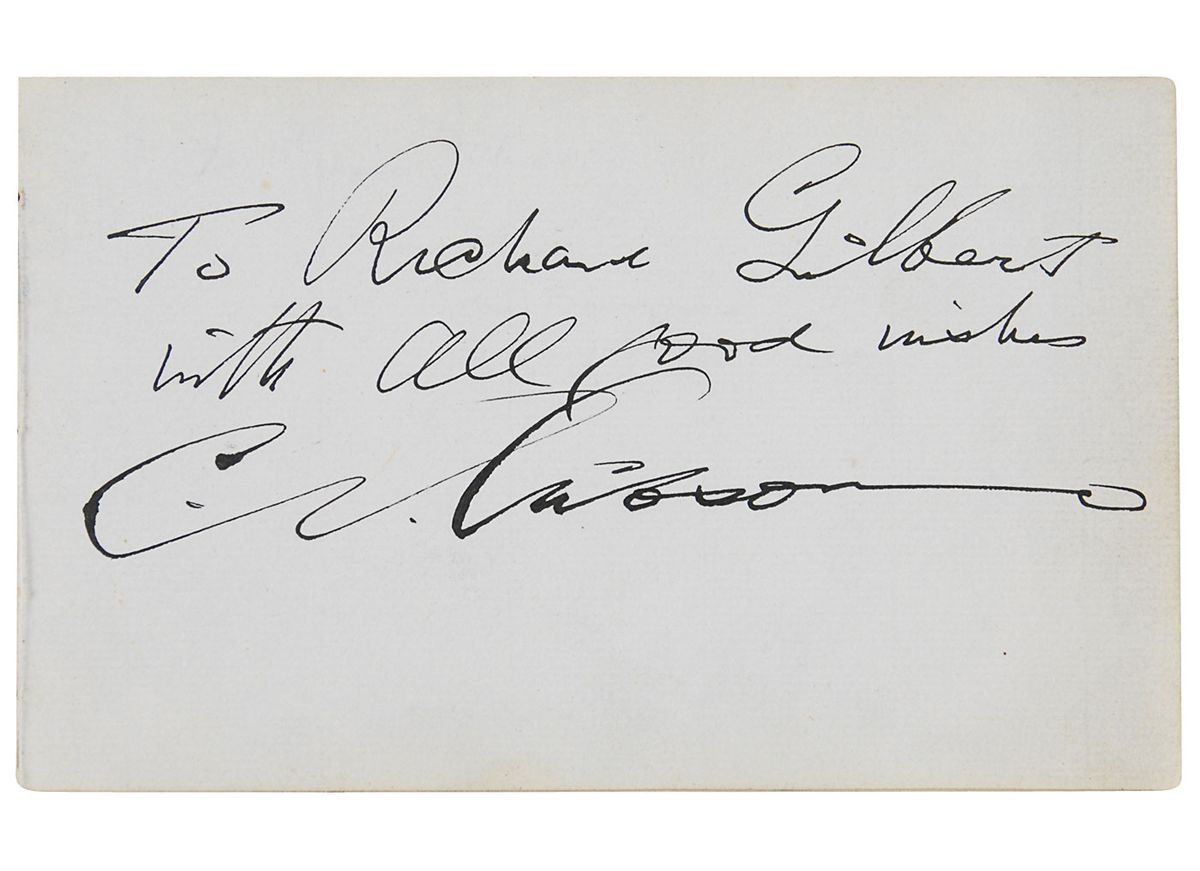 To Richard Gilbert
with all good wishes
C. D. Gibson